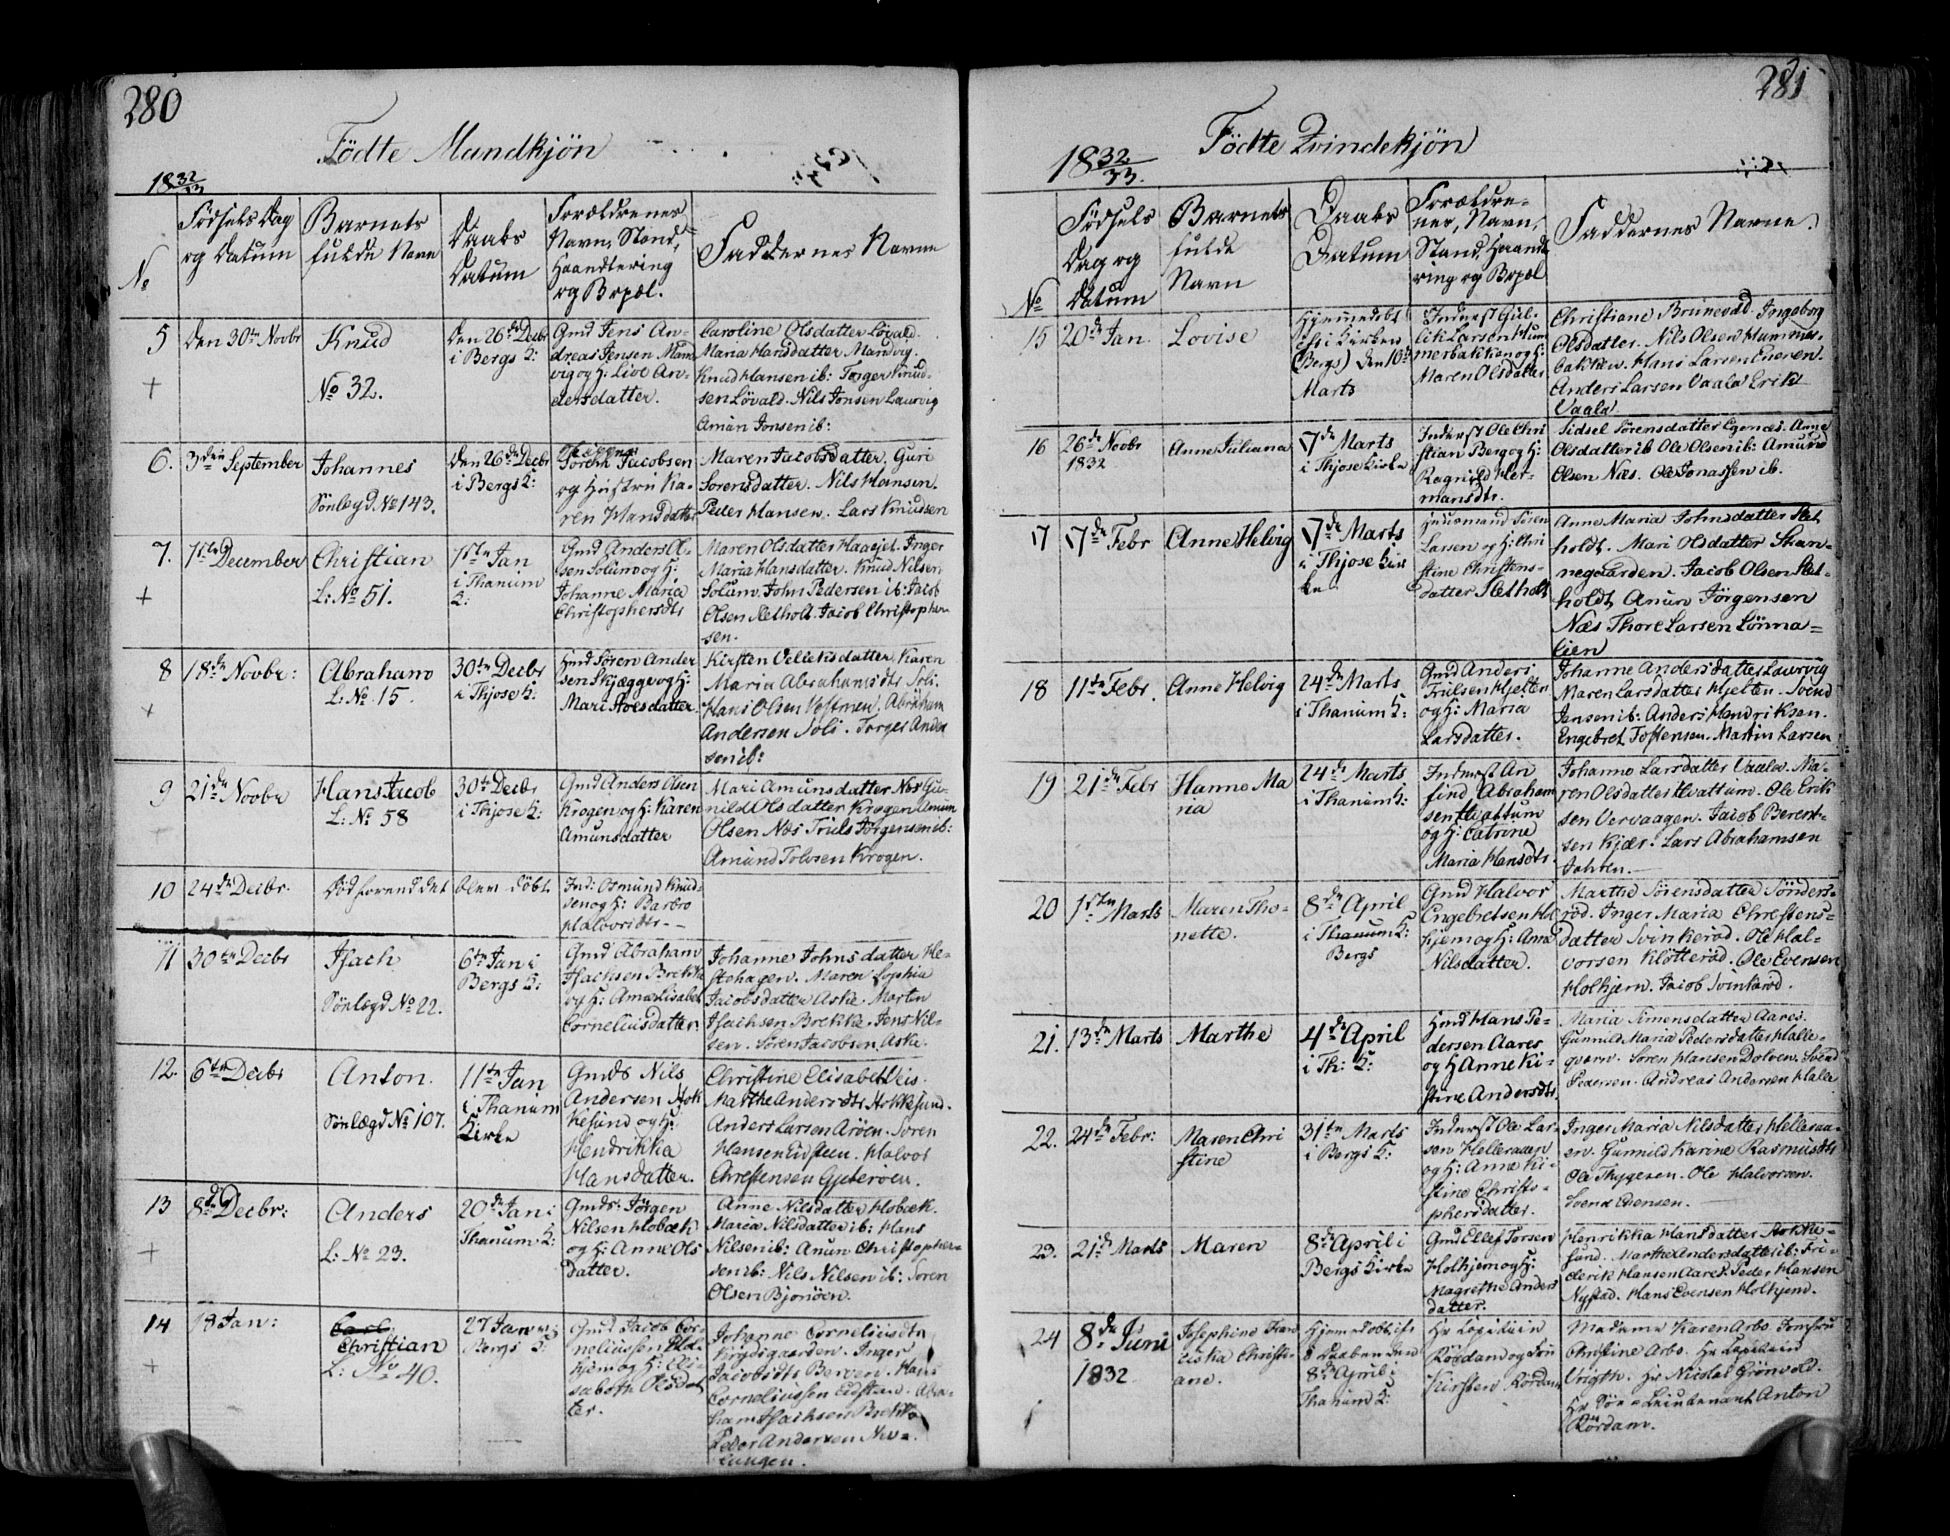 280
Födte Mandkjön
18 32/33
No
Födsels Dag
og Datum
Barnets
fulde Navn
Daabs
Datum
Forældrenes
Navn, Stand,
Haandtering
og Bopæl.
Faddernes Navne
5
Den 30te Novbr
Knud
No 32.
Den 26de Decbr
i Bergs K:
Gmd Jens An-
dreas Jensen Mand
vig og H: Live An-
dersdatter.
Caroline Olsdatter Løvald.
Maria Hansdatter Mandvig.
Knud Hansen ib: Torger Knud-
sen Løvald. Nils Jonsen Laurvig
Amun Jonsen ib:
6.
3die September
Johannes
Sönlægd No 143.
Den 26de Decbr
i Bergs K:
Sören Jacobsen
og Hustru Ka-
ren Hansdatter
Maren Jacobsdatter. Guri
Sorensdatter. Nils Hansen.
Peder Hansen. Lars Knudsen
7.
1ste December
Christian
L: No 51.
1ste Jan
i Thanum
K:
Gmd Anders Ol-
sen Solum og H:
Johanne Maria
Christophersdtr
Maren Olsdatter Haaejet. Inger
Maria Hansdatter. Knud Nilsen
Solum. John Pedersen ib: Jacob
Olsen Retholt. Jacob Christopher-
sen.
8
18de Novbr:
Abraham
L: No 15.
30te Decbr
i Thjose K:
Hmd Sören Ander
sen Skjægge og H:
Mari Holsdatter.
Kirsten Velleksdatter. Karen
Maria Abrahamsdtr Soli.
Hans Olsen Vestmen. Abraham
Andersen Soli. Torger Ander
sen ib:
9
21de Novbr
Hans Jacob
L: No 58
30te Decbr
i Thjose K:
Gmd Anders Olsen
Krogen og H: Karen
Amunsdatter
Mari Amunsdatter Næs Gu-
nild Olsdatter Krogen Amun
Olsen Næs Truls Jörgensen ib:
Amund Tolvsen Krogen.
10
24de Decbr.
Död forend det
blev döbt
Ind: Osmund Knud-
sen og H: Barbro
Halvorsdtr.
11
30te Decbr
Isach
Sönlægd No 22.
6te Jan i
Bergs K:
Gmd Abraham
Isachsen Brekke
og H: Anna Lisabet
Corneliusdatter.
Johanne Johnsdatter He-
stehagen. Maren Sophia
Jacobsdatter Aske. Martin
Isachsen Brekke. Jens Nil-
sen. Sören Jacobsen Aske.
12.
6te Decbr
Anton.
Sönlægd No 107.
11te Jan
i Thanum
Kirke
Gmds Nils
Andersen Hok
kesund og H:
Hendrikka
Hansdatter.
Christine Elisabet Deis.
Marthe Andersdtr Hokkesund.
Anders Larsen Aröen. Soren
Hansen Eidsteen. Halvor
Christensen Gjeteröen.
13
8de Decbr:
Anders
L: No 23.
20de Jan:
Thanum K:
Gmds: Jörgen
Nilsen Hobæk
og H: Anne Ols
datter.
Anne Nilsdatter Hobæk.
Maria Nilsdatter ib: Hans
Nilsen ib: Anun Christopher-
sen ib: Nils Nilsen ib: Soren
Olsen Bjonöen.
14
18 Jan:
Christian
L: No 40.
27 Januar:
Bergs K:
Gmd Jacob Cor-
neliussen Hol-
hjem og H: Eli-
sabeth Olsdat
ter.
Johanne Corneliusdtr
Krydsgaarden. Inger
Jacobsdtr Berven. Hans
Corneliussen Eidsten. Abra-
ham Isachsen Brekke
Peder Andersen Nev-
lungen.
281
Födte Qvindekjön
18 32/33.
No
Födsels
Dag og
Datum
Barnets
fulde
Navn
Daabs
Datum
Forældre-
nes, Navn,
Stand, Haandte
ring og Bopæl
Faddernes Navne.
15
20de Jan.
Lovise
Hjemmedöbt
ist i Kirken
(Bergs) den 10de
Marts
Inderst Gul-
lik Larsen Hum
merbakken og H:
Maren Olsdatter
Christiane Brunevad. Ingeborg
Olsdatter. Nils Olsen Hummer-
bakken. Hans Larsen Eueren.
Anders Larsen Vaale Erik
Vaale
16
26de Novbr
1832
Anne Juliana
7de Marts
i Thjose Kirke
Inderst Ole Chri
stian Berg og H:
Ragnild Her-
mansdtr.
Sidsel Sörensdatter Egenæs. Anne
Olsdatter ib Ole Olsen ib: Amund
Olsen Næs. Ole Jonassen ib.
17
7de Febr
Anne Helvig
7de Marts
i Thjose Kir
ke
Huusmand Sören
Larsen og H: Chri
stine Christens-
datter Retholt
Anne Maria Johnsdatter Ret
holdt. Mari Olsdatter Skan-
negaarden. Jacob Olsen Ret-
holdt Anun Jörgensen
Næs Thore Larsen Lönna-
lien
18
11te Febr.
Anne Helvig
24de Marts
i Thanum K:
Gmd Anders
Trulsen Hjelten
og H: Maria
Larsdatter.
Johanne Andersdatter Laurvig
Maren Larsdatter Hjelten. Svend
Jensen ib: Anders Hendriksen.
Engebret Tostensen. Martin Larsen
19
21de Febr
Hanne Ma
ria
24de Marts
i Thanum K:
Inderst An
find Abraham
sen Hvattum
og H: Catrine
Maria Hansdtr.
Johanne Larsdatter Vaale. Ma-
ren Olsdatter Hvattum. Ole Erik
sen Vervaagen. Jacob Berent-
sen Kjær. Lars Abrahamsen
Johten.
20
1ste Marts
Maren Tho-
nette.
8de April
i Thanum K:
Bergs
Gmd Halvor
Engebretsen Hol
hjem og H: Anne
Nilsdatter.
Marthe Sörensdatter Sönders-
röd. Inger Maria Christens-
datter Svinkeröd. Ole Hal-
vorsen Klötteröd. Ole Evensen
Holhjem. Jacob Svinkeröd.
21.
13de Marts
Marthe
4de April
i Th: K:
Hmd Hans Pe-
dersen Aares
og H Anne Ki-
stine Andersdtr.
Maria Simensdatter Aares.
Gunnild Maria Pedersdatter Halle-
qværn. Sören Hansen Dolven. Svend
Pedersen. Andreas Andersen Halle
22.
24de Febr:
Maren Chri
stine
31te Marts
i Bergs K:
Inderst Ole Lar-
sen Helleraaen
og H: Anne Ki-
stine Christo-
phersdatter.
Inger Maria Nilsdatter Helleraa-
en. Gunnild Karine Rasmusdtr
Ole Thygesen. Ole Halvorsen.
Svend Evensen.
23.
21de Marts
Maren
8de April i
Bergs Kirke
Gmd Ellef Torsen
Holhjem og H:
Magrethe Anders
datter.
Henrikka Hansdatter Hokke-
sund. Marthe Andersdatter ib: Fri-
derik Hansen Aares. Peder Hansen
Nystad. Hans Evensen Holhjem.
24
8de Juni
1832
Josephine Fran
ciska Christi-
ane.
8de April i
Thanum K:
Hr Capitain
Rördam og Fru
Kirsten Rördam
Madame Karen Arbo. Jomfru
Christine Arbo. Hr Capitain
Vrigth. Hr Nicolai Grönvold.
Hr Sö-Leiutenant Anton
Rördam.